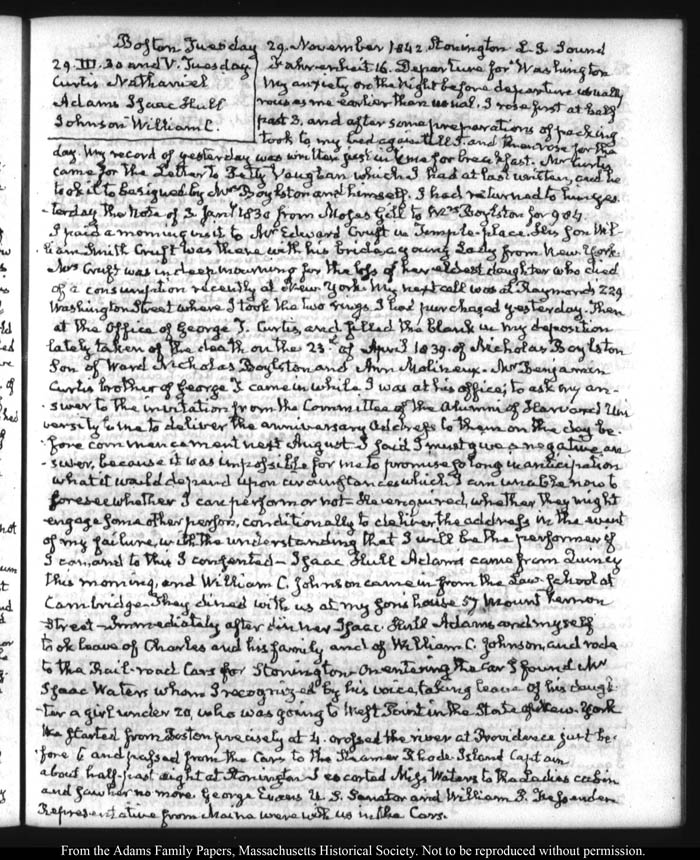 Boston Tuesday 29. November 1842. Stonington L. I. Sound
29. III. 30 and V. Tuesday
Curtis Nathaniel
Adams Isaac Hull
Johnson William C.
Fahrenheit 16. Departure for Washington
My anxiety on the night before departure usually
rouses me earlier than usual. I rose first at half
past 3, and after some preparations of packing
took to my bed again till 5. and then rose for the
day. My record of yesterday was written just in time for breakfast. Mr Curtis
came for the Letter to Petty Vaughan which I had at last written, and he
took it to be signed by Mrs Boylston and himself. I had returned to him yes-
terday the Note of 3. Jany 1830 from Moses Gill to W. N. Boylston for 984.
I paid a morning visit to Mr Edward Cruft in Temple-place. His son Wil-
liam Smith Cruft was there with his bride, a young Lady from New York.
Mrs Cruft was in deep mourning for the loss of her eldest daughter who died
of a consumption recently at New York. My next call was at Raymond's 229
Washington Street where I took the two rings I had purchased yesterday. Then
at the Office of George T. Curtis, and filled the blank in my deposition
lately taken of the death on the 23d of April 1839. of Nicholas Boylston
Son of Ward Nicholas Boylston and Ann Molineux. Mr Benjamin
Curtis brother of George T came in while I was at his office; to ask my an-
swer to the invitation from the Committee of the Alumni of Harvard Uni
versity to me to deliver the anniversary Address to them on the day be-
fore commencement next August. I said I must give a negative an
swer, because it was impossible for me to promise so long in anticipation
what it would depend upon circumstances which I am unable now to
foresee whether I can perform or not. He enquired, whether they might
engage some other person, conditionally to deliver the address in the event
of my failure, with the understanding that I will be the performer if
I can, and to this I consented. Isaac Hull Adams came from Quincy
this morning, and William C. Johnson came in from the Law-School at
Cambridge. They dined with us at my son's house 57 Mount Vernon
Street. Immediately after dinner Isaac Hull Adams and myself
took leave of Charles and his family and of William C. Johnson, and rode
to the Rail-road Cars for Stonington. On entering the Car I found Mr
Isaac Waters whom I recognized by his voice, taking leave of his daugh-
ter a girl under 20, who was going to West Point in the State of New York
We started from Boston precisely at 4. crossed the river at Providence just be-
fore 6 and passed from the Cars to the Steamer Rhode Island Captain
about half-past eight at Stonington I escorted Miss Waters to the Ladies cabin
and saw her no more. George Evans U. S. Senator and William P. Fessenden
Representative from Maine were with us in the Cars.
From the Adams Family Papers, Massachusetts Historical Society. Not to be reproduced without permission.